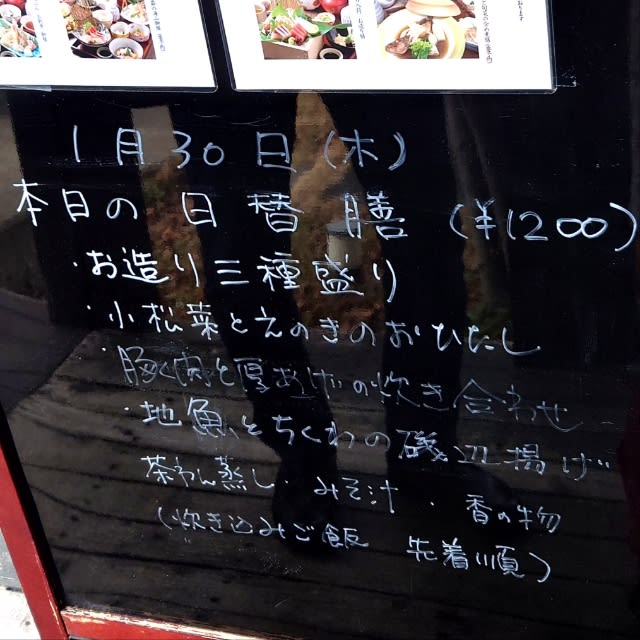 1月30日(木)
本日の日替膳(¥1200)
・お造り三種盛り
・小松菜とえのきのおひたし
・豚肉と厚あげの炊き合わせ
・地魚とちくわの磯辺揚げ
茶わん蒸し・みそ汁・香の物
(炊き込みご飯 先着順)